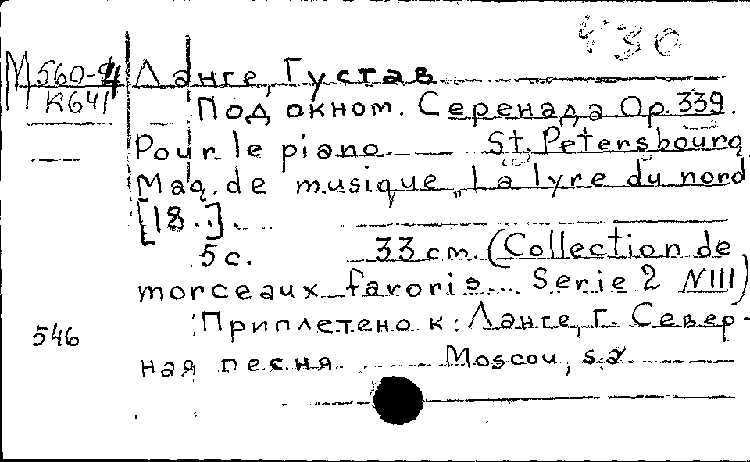 430
М 560-4 Ланге, Густав
К641 Под окном. Серенада Op. 339.
Pour le piano. — St. Petersbourg
Mag. de musique „La lyre du nord
[18..].
5 с. 33 cm. (Collection de
morceaux favoris... Serie 2 N III)
Приплетено к: Ланге, Г. Север-
546
ная песня. — Moscou, s.a.